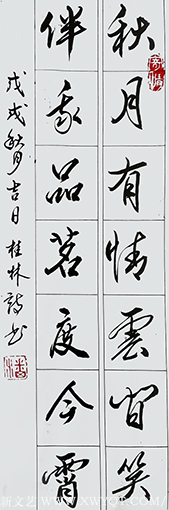 秋月有情雲皆笑
伴我品茗度今霄
戊戌秋月吉日桂林詩书
新文艺 WWW.XWYCN.COM